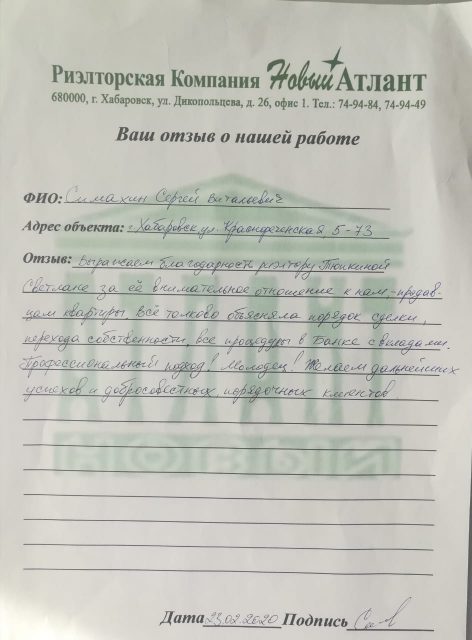 Риэлторская Компания Новый Атлант
680000, г. Хабаровск, ул. Дикопольцева, д. 26, офис 1. Тел.: 74-94-84, 74-94-49
Ваш отзыв о нашей работе
ФИО: Симахин Сергей Витальевич
Адрес объекта: г. Хабаровск ул. Краснореченская, 5-73
Отзыв: Выражаем благодарность риэлтору
Светлане за её внимательное отношение к нам,-продав-
цам квартиры. Всё толково объясняла порядок сделки,
перехода собственности, все процедуры в Банке с вкладами.
Профессиональный подход! Молодец! Желаем дальнейших
успехов и добросовестных, порядочных клиентов
Дата 23.02.2020 Подпись